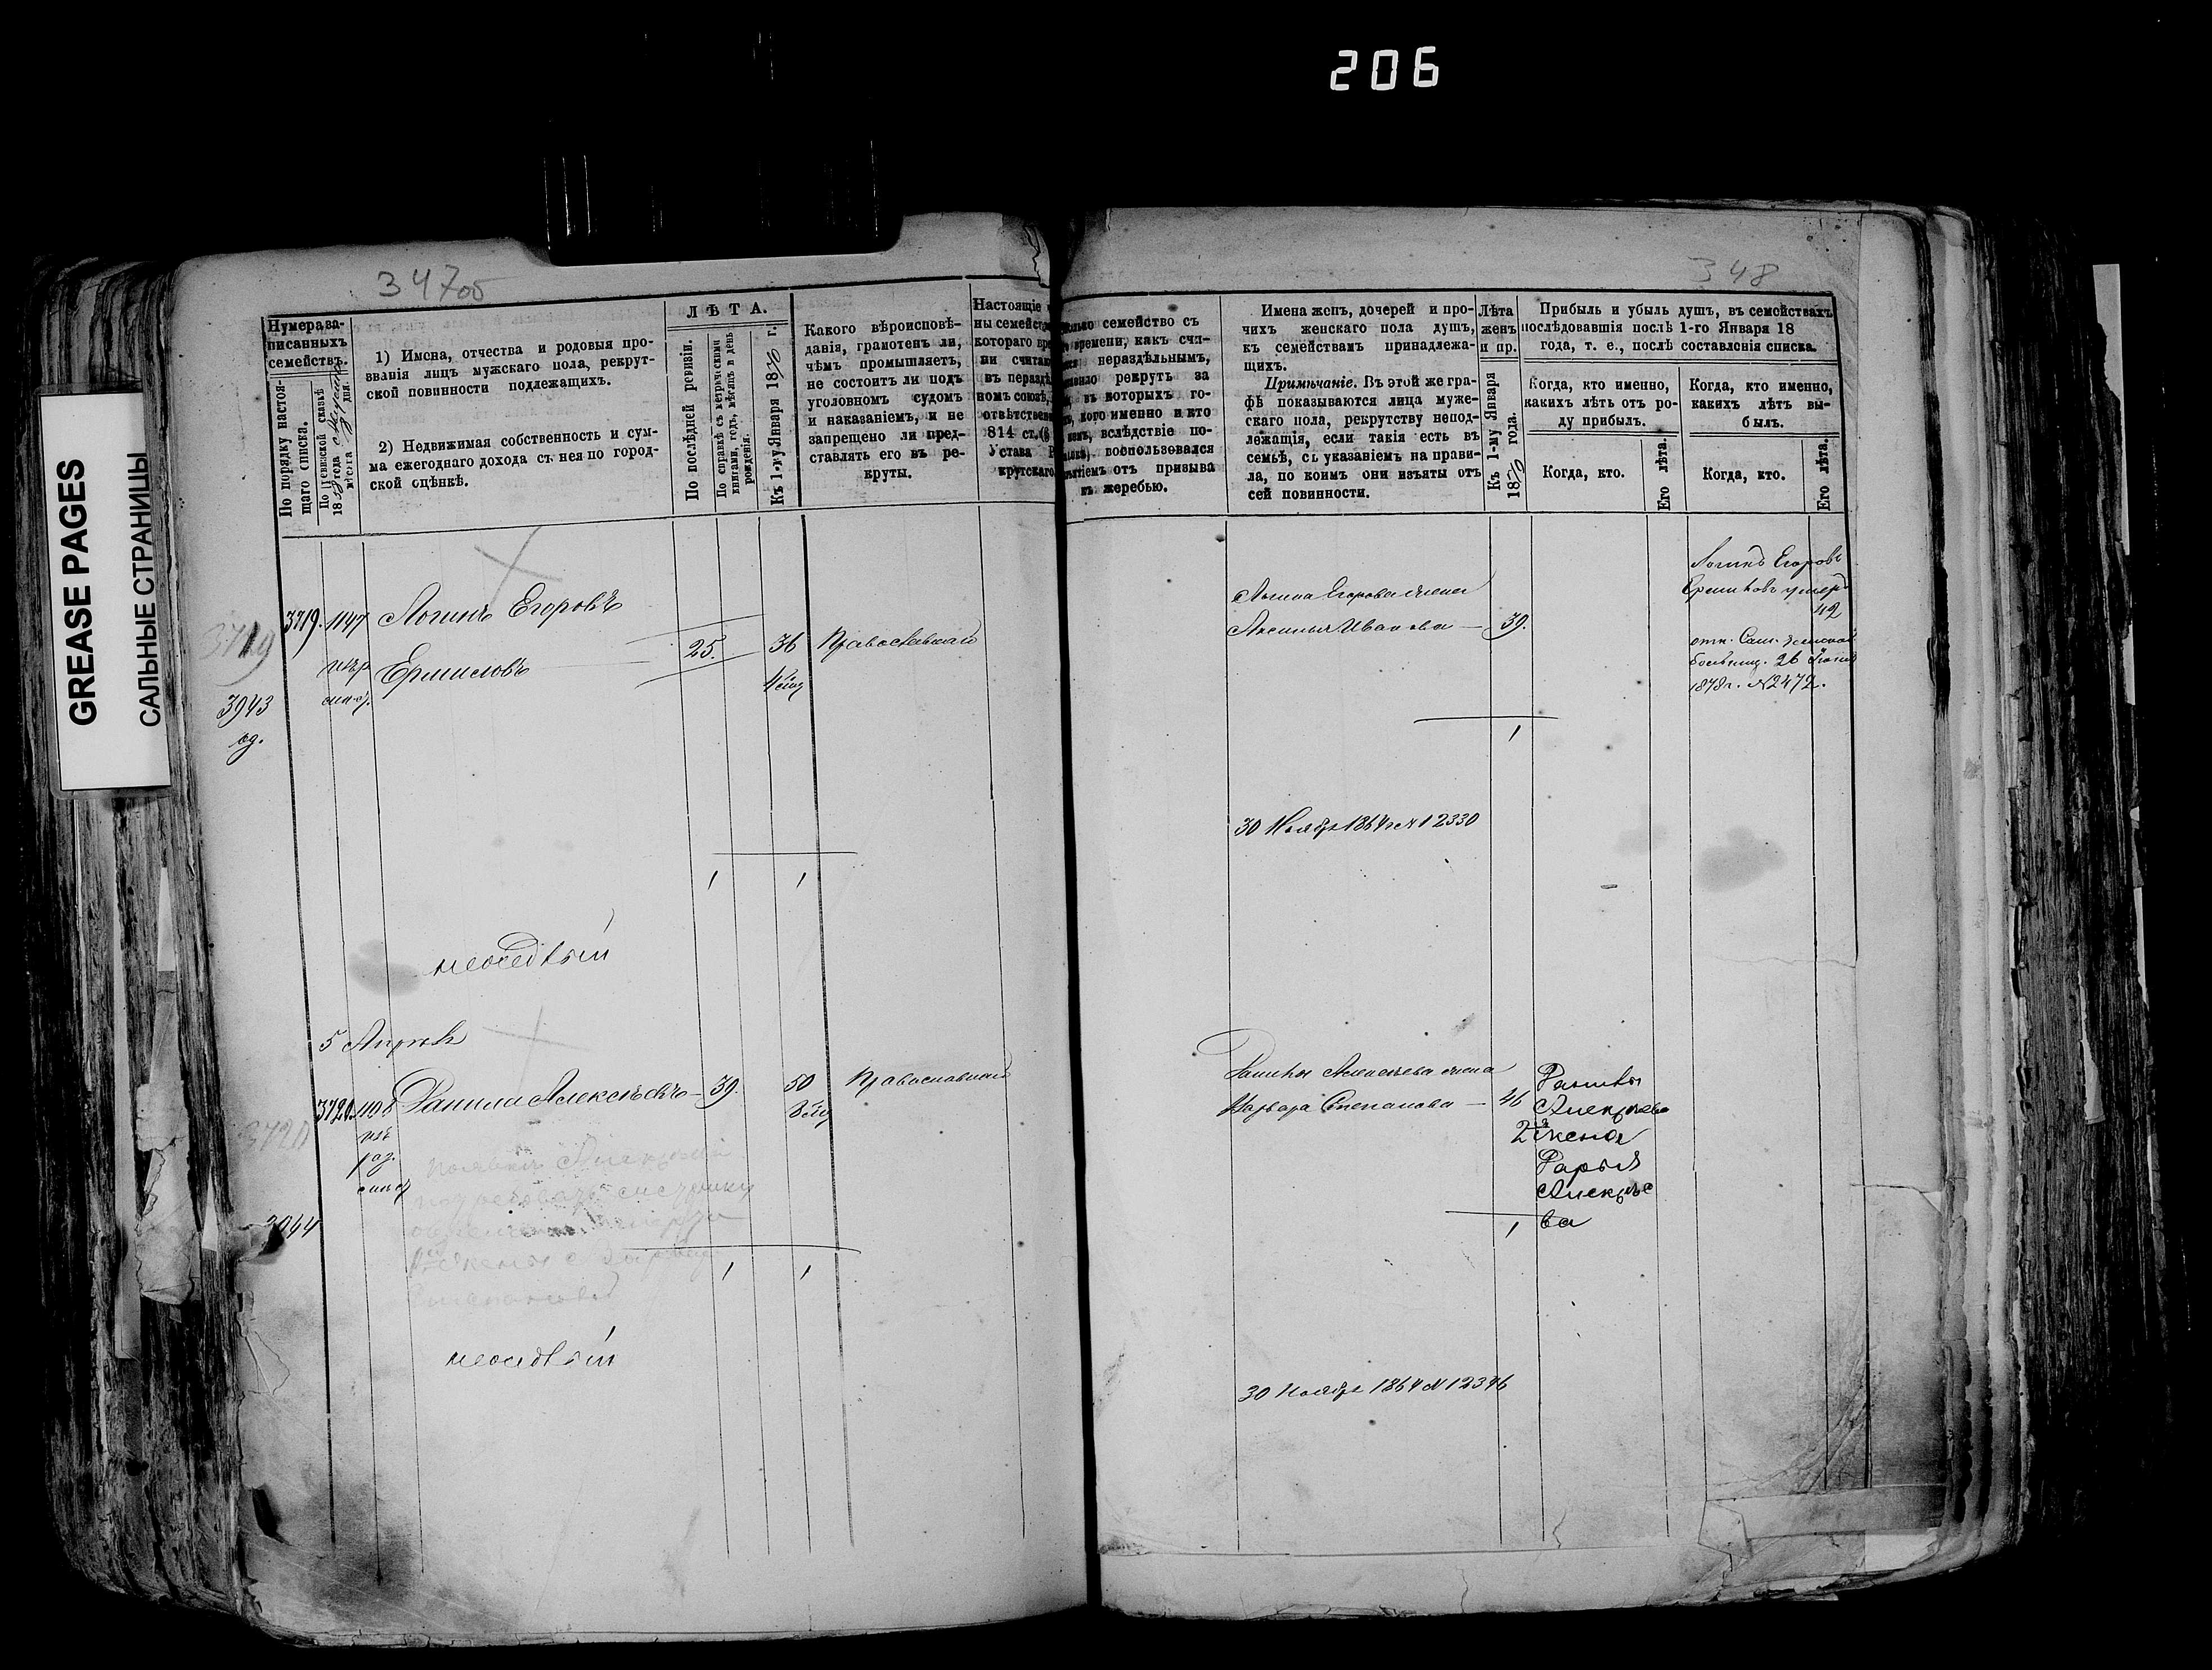 206
GREASE PAGES
САЛЬНЫЕ СТРАНИЦЫ
347об
Нумера за-
писанныхъ
семействъ.
По порядку настоя-
щаго списка.
По ревизской сказкѣ
1858 года
мѣста дня.
1) Имена, отчества и родовыя про-
званія лицъ мужскаго пола, рекрут-
ской повинности подлежащихъ.
2) Недвижимая собственность и сум-
ма ежегоднаго дохода съ нея по город-
ской оцѣнкѣ.
ЛѢТА.
По послѣдней ревизіи.
По справкѣ съ метрическими
книгами, годъ, мѣсяцъ и день
рожденія.
Къ 1-му Января 1870 г.
Какого вѣроисповѣ-
данія, грамотенъ ли,
чѣмъ промышляетъ,
не состоитъ ли подъ
уголовномъ судомъ
и наказаніемъ, и не
запрещено ли пред-
ставлять его въ ре-
круты.
Настоящіе
ны семейст
котораго вре
ли считае
въ нераздѣ
номъ союзѣ,
отвѣтствен
814 ст.
Устава Р
крутскаго
3719
3719. 1147 Логинъ Егоровъ
Ермиловъ 25. 36 Православнаго
3943
од.
1 1
неоседлый
5 Апрѣля
3720 1108 Данила Алексѣевъ 39. 50 Православнаго
3720
3944
1 1
неоседлый
348
семейство съ
времени, какъ счи-
нераздѣльнымъ,
рекрутъ за
въ которыхъ го-
кого именно и кто
вслѣдствіе по-
воспользовался
отъ призыва
къ жеребью.
Имена женъ, дочерей и про-
чихъ женскаго пола душъ,
къ семействамъ принадлежа-
щихъ.
Примѣчаніе. Въ этой же гра-
фѣ показываются лица муже-
скаго пола, рекрутству непод-
лежащія, если такія есть въ
семьѣ, съ указаніемъ на прави-
ла, по коимъ они изъяты отъ
сей повинности.
Лѣта
женъ
и пр.
Къ 1-му Января
1870 года.
Прибыль и убыль душъ, въ семействахъ
послѣдовавшія послѣ 1-го Января 18
года, т. е., послѣ составленія списка.
Когда, кто именно,
какихъ лѣтъ отъ ро-
ду прибылъ.
Когда, кто.
Его лѣта.
Когда, кто именно,
какихъ лѣтъ вы-
былъ.
Когда, кто.
Его лѣта.
Логина Егорова жена
Аксинья Иванова — 39.
1
30 Ноября 1864 г № 12330
Логинъ Егоровъ
Ермиловъ умеръ
42
отн. Сам. земской
больниц. 26 Іюня
1878 г. № 2472.
Данилы Алексѣева жена
Варвара Степанова — 46
1
Данилы
Алексѣева
2я жена
Дарья
Алексѣе
ва
30 Ноября 1864 № 12346